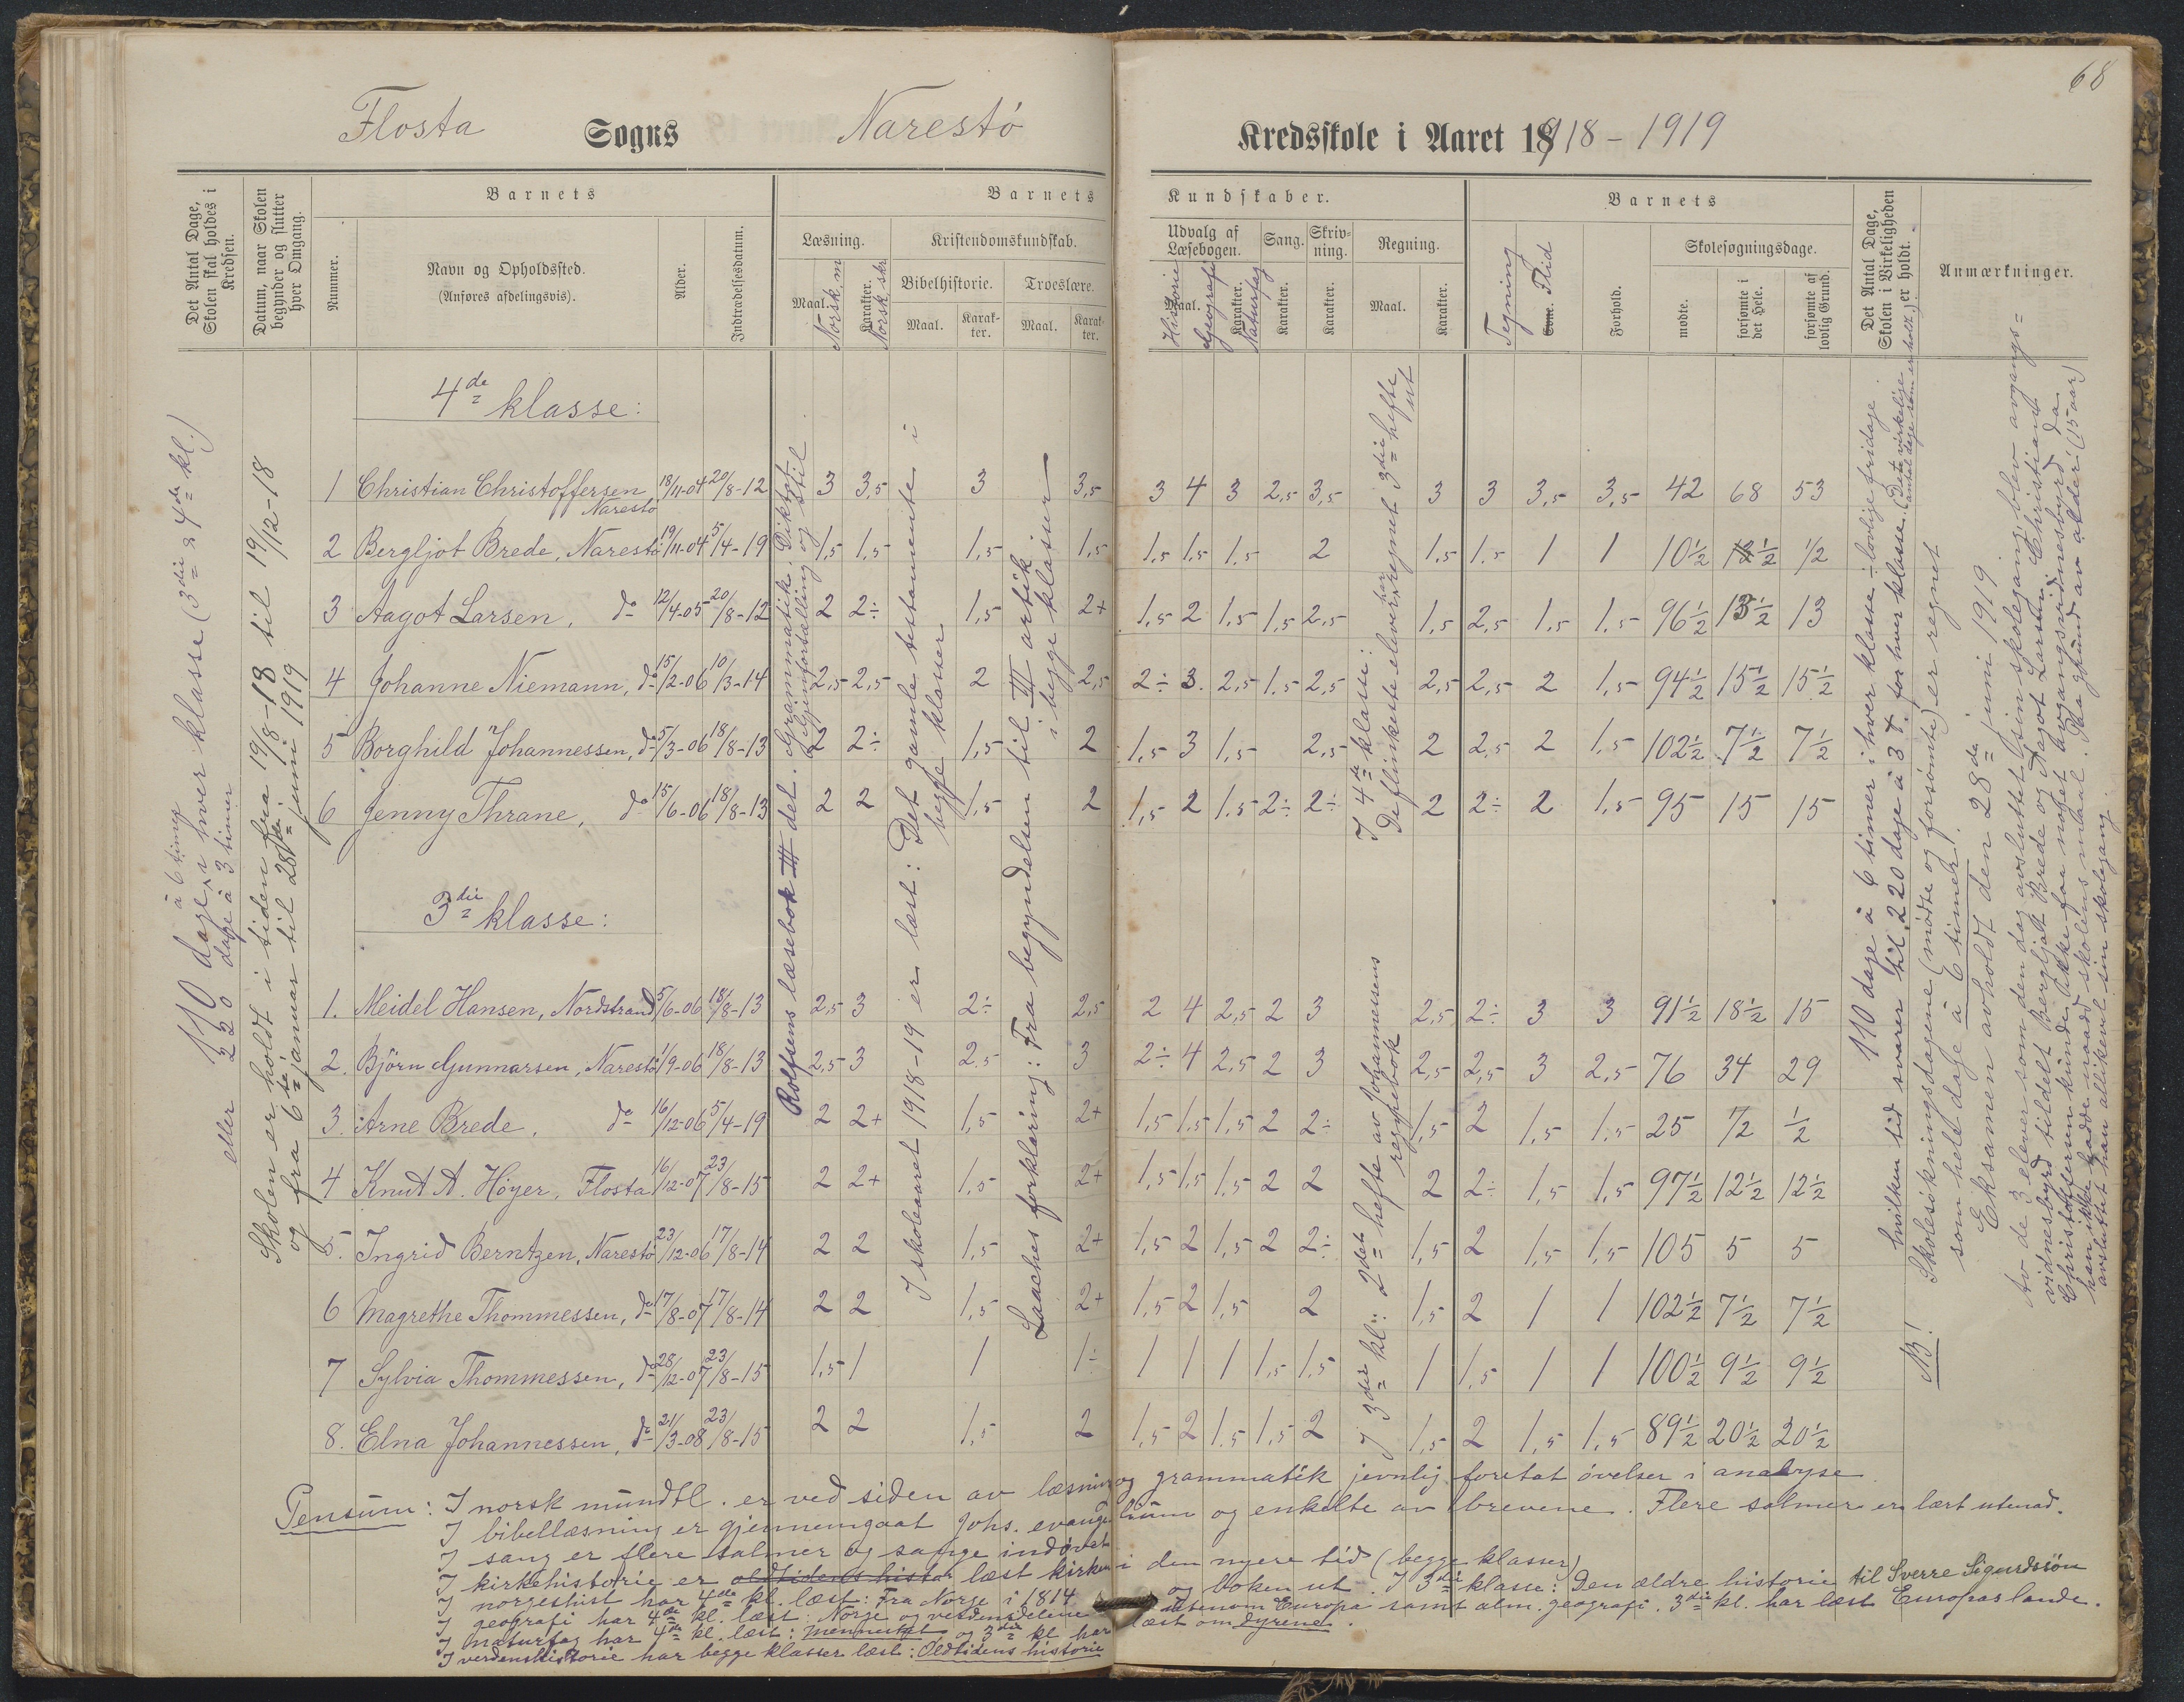 68
Flosta Sogns Narestö Kredsskole i Aaret 1918-1919
Det Antal Dage, Skolen skal holdes i Kredsen.
Datum, naar Skolen begynder og slutter hver Omgang.
Barnets
Nummer.
Navn og Opholdssted.
(Anføres afdelingsvis).
Alder.
Indtrædelsesdatum.
Barnets Kundskaber.
Læsning.
Maal.
Norsk, m
Karakter.
Norsk, skr
Kristendomskundskab.
Bibelhistorie.
Maal.
Karakter.
Troeslære.
Maal.
Karakter.
Udvalg af Læsebogen.
Maal.
Historie
Geografi
Karakter.
Naturfag
Sang.
Karakter.
Skrivning.
Karakter.
Regning.
Maal.
Karakter.
Barnets
Tegning
Evne. Flid
Forhold.
Skolesøgningsdage.
mødte.
forsømte i det Hele.
forsømte af lovlig Grund.
Det Antal Dage, Skolen i Virkeligheden er holdt.
Anmærkninger.
110 dage à 6 timer i hver klasse (3die & 4de kl.)
eller 220 dage à 3 timer
Skolen er holdt i tiden fra 19/8-18 til 19/12-18
og fra 6te januar til 28de juni 1919
4de klasse:
1 Christian Christoffersen Narestö 18/11-04 20/8-12 3 3,5 3 3,5 3 4 3 2,5 3,5 3 3 3,5 3,5 42 68 53
2 Bergljot Brede, Narestö 19/11-04 5/4-19 1,5 1,5 1,5 1,5 1,5 1,5 1,5 2 1,5 1,5 1 1 10½ 12½ ½
3 Aagot Larsen, do 12/4-05 20/8-12 2 2÷ 1,5 2+ 1,5 2 1,5 1,5 2,5 1,5 2,5 1,5 1,5 96½ 13½ 13
4 Johanne Niemann, do 15/2-06 10/3-14 2,5 2,5 2 2,5 2÷ 3. 2,5 1,5 2,5 2,5 2,5 2 1,5 94½ 15½ 15½
5 Borghild Johannessen, do 5/3-06 18/8-13 2 2÷ 1,5 2 1,5 3 1,5 2,5 2 2,5 2 1,5 102½ 7½ 7½
6 Jenny Thrane, do 15/6-06 18/8-13 2 2 1,5 2 1,5 2 1,5 2÷ 2÷ 2 2÷ 2 1,5 95 15 15
3die klasse:
1. Meidel Hansen, Nordstrand 5/6-06 18/8-13 2,5 3 2÷ 2,5 2 4 2,5 2 3 2,5 2÷ 3 3 91½ 18½ 15
2. Björn Gunnarsen, Narestö 1/9-06 18/8-13 2,5 3 2,5 3 2÷ 4 2,5 2 3 2,5 2,5 3 2,5 76 34 29
3. Arne Brede, do 16/12-06 5/4-19 2 2+ 1,5 2+ 1,5 1,5 1,5 2 2÷ 1,5 2 1,5 1,5 25 ½ ½
4 Knut A. Höyer, Flosta 16/12-07 23/8-15 2 2+ 1,5 2+ 1,5 1,5 1,5 2 2 2 2÷ 1,5 1,5 97½ 12½ 12½
5. Ingrid Berntzen, Narestö 23/12-06 17/8-14 2 2 1,5 2+ 1,5 2 1,5 2 2÷ 1,5 2 1,5 1,5 105 5 5
6 Magrethe Thommessen, do 17/8-07 17/8-14 2 2 1,5 2+ 1,5 2 1,5 2 1,5 2 1 1 102½ 7½ 7½
7 Sylvia Thommessen, do 28/12-07 23/8-15 1,5 1 1 1÷ 1 1 1 1,5 1,5 1 1,5 1 1 100½ 9½ 9½
8. Elna Johannessen, do 21/3-08 23/8-15 2 2 1,5 2 1,5 2 1,5 1,5 2 1,5 2 1,5 1,5 89½ 20½ 20½
Rolfsens læsebok III del. Grammatik. Diktat
Gjenfortælling og stil
I skoleaaret 1918-19 er læst: Det gamle testamente i
begge klasser
Laaches forklaring: Fra begyndelsen til III artik
i begge klasser
I 3die kl.: 2det hefte av Johannessens
regnebok
I 4de klasse:
De flinkeste elever har regnet 3die hefte
ut
110 dage à 6 timer i hver klasse ÷ lovlige fridage.
hvilken tid svarer til 220 dage à 3 t. for hver klasse. (Dette virkelige
antal dage som er holdt.)
NB! Skolesökningsdagene (mödte og forsömte) er regnet
som hele dage à 6 timer!
Eksamen avholdt den 28de juni 1919
Av de 3 elever som den dag avsluttet sin skolegang, blev avgangs=
vidnesbyrd tildelt Bergljot Brede og Aagot Larsen. Christian
Christoffersen kunde ikke faa noget avgangsvidnesbyrd da
han ikke hadde naadd skolens maal. Paa grund av alder (15 aar)
avsluttet han allikevel sin skolegang.
Pensum: I norsk mundtl. er ved siden av læsning og grammatik jevnlig foretat övelser i analyse
I bibellæsning er gjennemgaat Johs. evangelium og enkelte av brevene. Flere salmer er lært utenad.
I sang er flere salmer og sange indövet
I kirkehistorie er oldtidens histor læst kirken i den nyere tid (begge klasser)
I norgeshist har 4de kl. læst: Fra Norge i 1814 og boken ut. I 3die klasse: Den ældre historie til Sverre Sigurdssön
I geografi har 4de kl. læst: Norge og verdensdelene utenom Europa samt alm. geografi. 3die kl. har læst Europas lande.
I naturfag har 4de kl. læst: Mennesket og 3die kl har læst om dyrene.
I verdenshistorie har begge klasser læst: Oldtidens historie